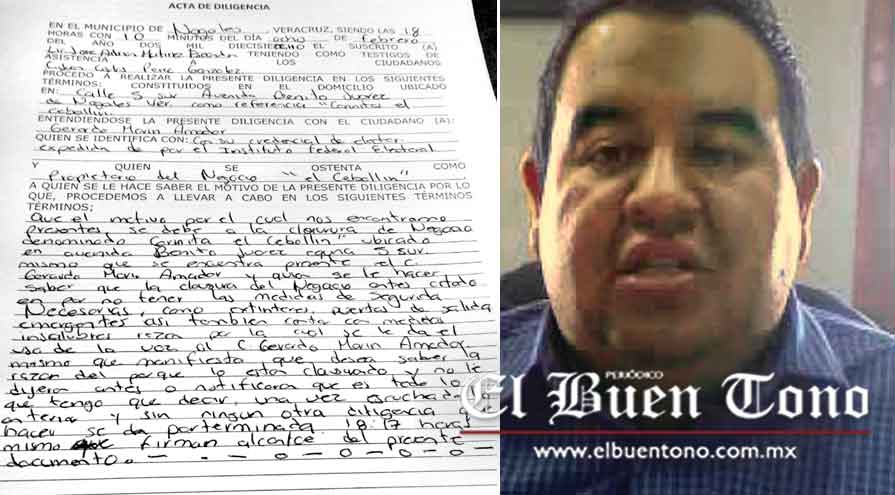 ACTA DE DILIGENCIA
EN EL MUNICIPIO DE Nogales, VERACRUZ, SIENDO LAS 18
HORAS CON 10 MINUTOS DEL DIA ocho DE febrero
DEL AÑO DOS MIL DIECISIETE OCHO EL SUSCRITO (A)
TENIENDO COMO TESTIGOS DE
ASISTENCIA A LOS CIUDADANOS
Carlos Perez Gonzalez
PROCEDO A REALIZAR LA PRESENTE DILIGENCIA EN LOS SIGUIENTES
TÉRMINOS: CONSTITUIDOS EN EL DOMICILIO UBICADO
EN: Calle 5 sur Avenida Benito Juarez
de Nogales Ver. como referencia "Carnitas el
Cebollin"
ENTENDIÉNDOSE LA PRESENTE DILIGENCIA CON EL CIUDADANO (A):
Gerardo Marin Amador
QUIEN SE IDENTIFICA CON: Con su credencial de elector
expedida de por el Instituto Federal Electoral
Y QUIEN SE OSTENTA COMO
Propietario del Negocio "el Cebollin"
A QUIEN SE LE HACE SABER EL MOTIVO DE LA PRESENTE DILIGENCIA POR LO
QUE, PROCEDEMOS A LLEVAR A CABO EN LOS SIGUIENTES TÉRMINOS
TÉRMINOS;
Que el motivo por el cual nos encontramos
presentes, se debe a la clausura de Negocio
denominado Carnita el Cebollin" ubicado
en avenida Benito Juarez esquina 5 sur.
mismo que se encuentra presente el C.
Gerardo Marin Amador y quien se le hacer
saber que la clausura del Negocio antes citado
en por no tener las medidas de segurida
Necesarias, como extintores, puertas de salida
emergentes asi tambien contar con medidas
insalubres razon por la cual se le da el
uso de la voz al C Gerardo Marin Amador
mismo que manifiesto que desea saber la
razon del porque lo estan clausurado y no le
dijera antes o notificara que es todo lo
que tengo que decir, una vez escuchado
enteria y sin ningun otra diligencia que
hacer se da por terminada 18:17 horas
mismo que firman alcalce del presente
documento.
PERIÓDICO
El Buen Tono
www.elbuentono.com.mx